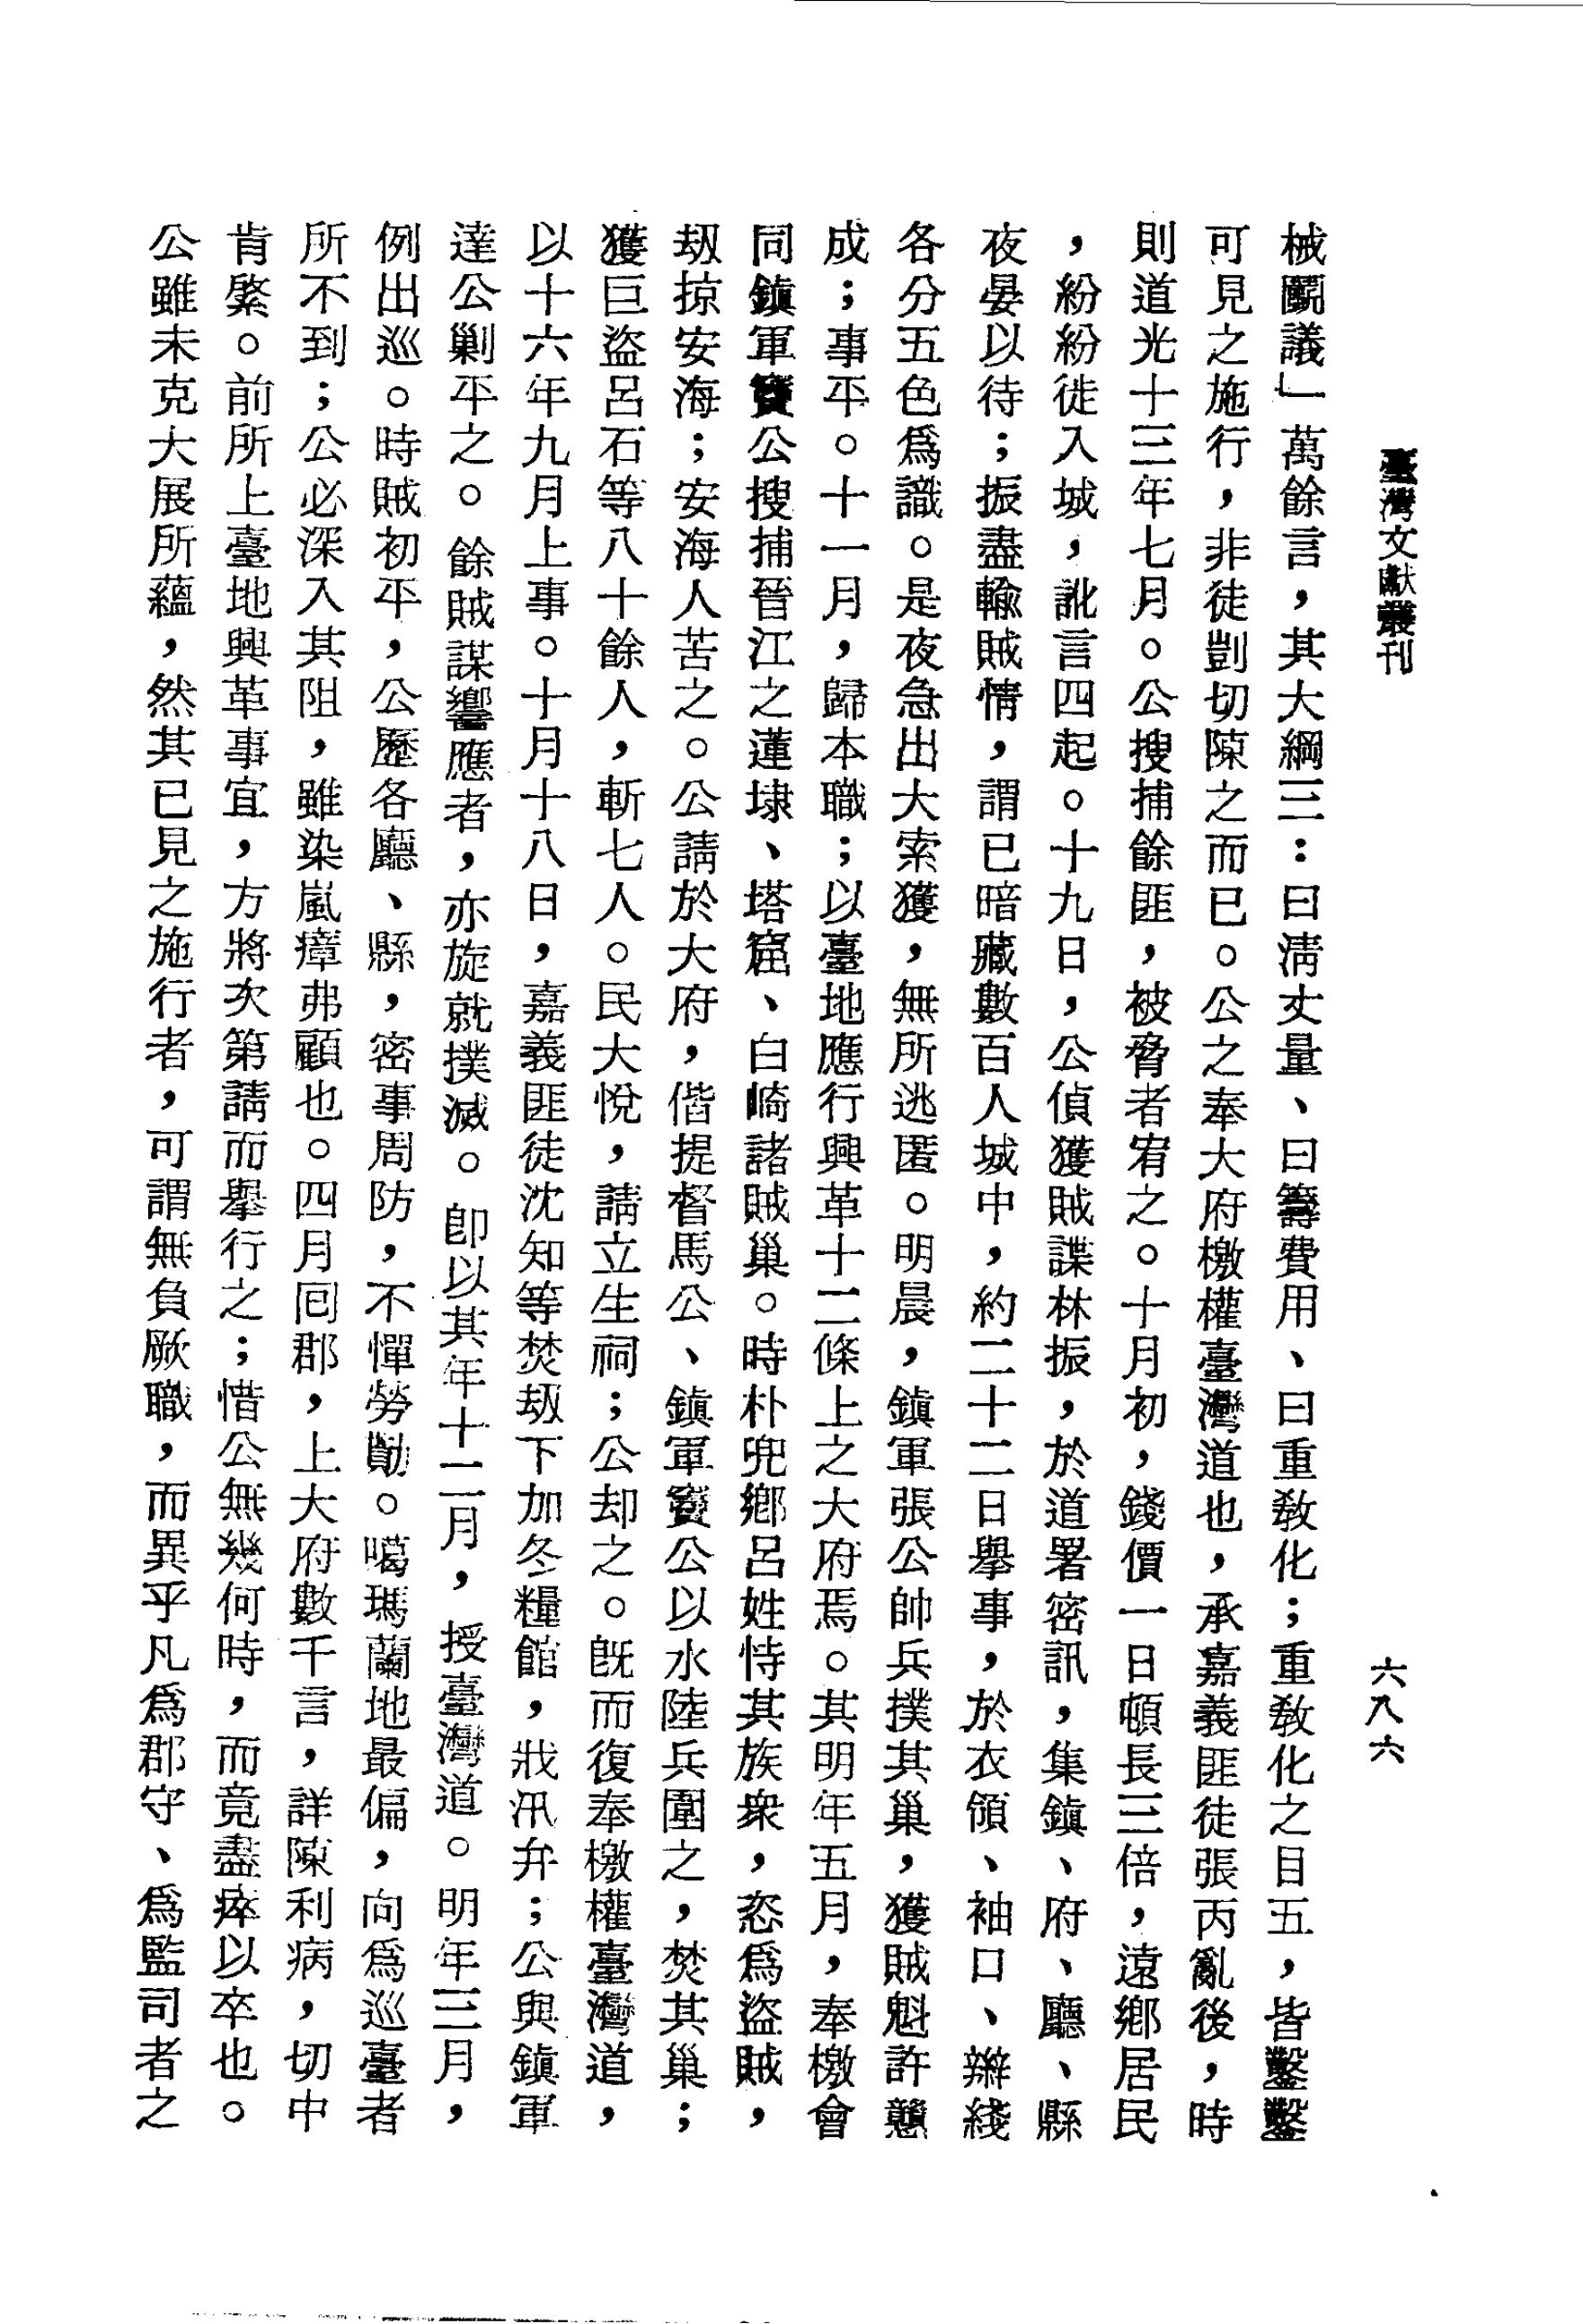 臺灣文獻叢刊
六八六
械鬭議」萬餘言，其大綱三：曰淸丈量、曰籌費用、曰重敎化；重敎化之目五，皆鑿鑿
可見之施行，非徒剴切陳之而已。公之奉大府檄權臺灣道也，承嘉義匪徒張丙亂後，時
則道光十三年七月。公搜捕餘匪，被脅者宥之。十月初，錢價一日頓長三倍，遠鄕居民
，紛紛徙入城，訛言四起。十九日，公偵獲賊諜林振，於道署密訊，集鎭、府、廳、縣
夜晏以待；振盡輸賊情，謂已暗藏數百人城中，約二十二日舉事，於衣領、袖口、辮綫
各分五色爲識。是夜急出大索獲，無所逃匿。明晨，鎭軍張公帥兵撲其巢，獲賊魁許戇
成；事平。十一月，歸本職；以臺地應行興革十二條上之大府焉。其明年五月，奉檄會
同鎭軍竇公搜捕晉江之蓮埭、塔窟、白崎諸賊巢。時朴兜鄕呂姓恃其族衆，恣爲盜賊，
刼掠安海；安海人苦之。公請於大府，偕提督馬公、鎭軍竇公以水陸兵圍之，焚其巢；
獲巨盜呂石等八十餘人，斬七人。民大悅，請立生祠；公却之。旣而復奉檄權臺灣道，
以十六年九月上事。十月十八日，嘉義匪徒沈知等焚刼下加冬糧館，戕汛弁；公與鎭軍
達公剿平之。餘賊謀響應者，亦旋就撲滅。卽以其年十二月，授臺灣道。明年三月，
例出巡。時賊初平，公歷各廳、縣，密事周防，不憚勞勩。噶瑪蘭地最偏，向爲巡臺者
所不到；公必深入其阻，雖染嵐瘴弗顧也。四月囘郡，上大府數千言，詳陳利病，切中
肯綮。前所上臺地興革事宜，方將次第請而舉行之；惜公無幾何時，而竟盡瘁以卒也。
公雖未克大展所蘊，然其已見之施行者，可謂無負厥職，而異乎凡爲郡守、爲監司者之